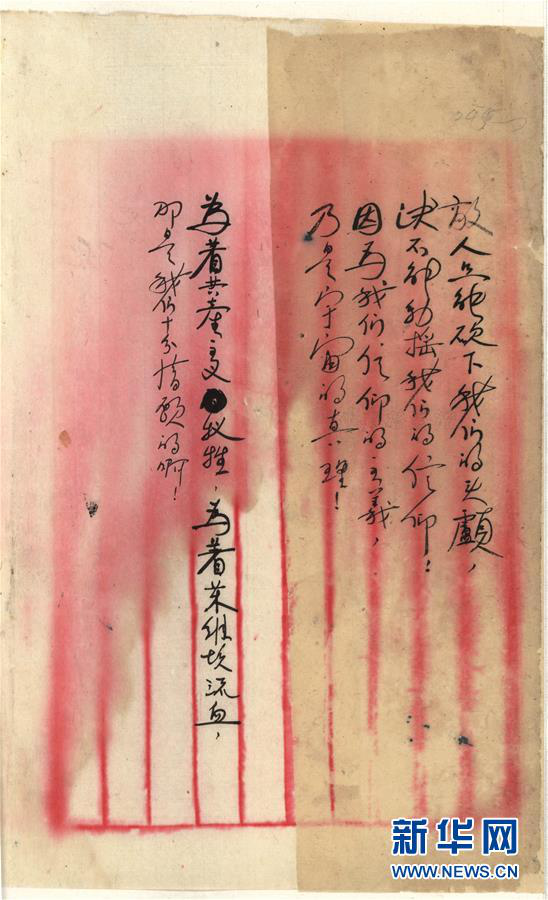 敌人只能砍下我们的头顱，
决不能动摇我们的信仰！
因為我们信仰的主義，
乃是宇宙的真理！
為着共產主义牺牲，為着苏维埃流血，
那是我们十分情愿的啊！
新华网
WWW.NEWS.CN